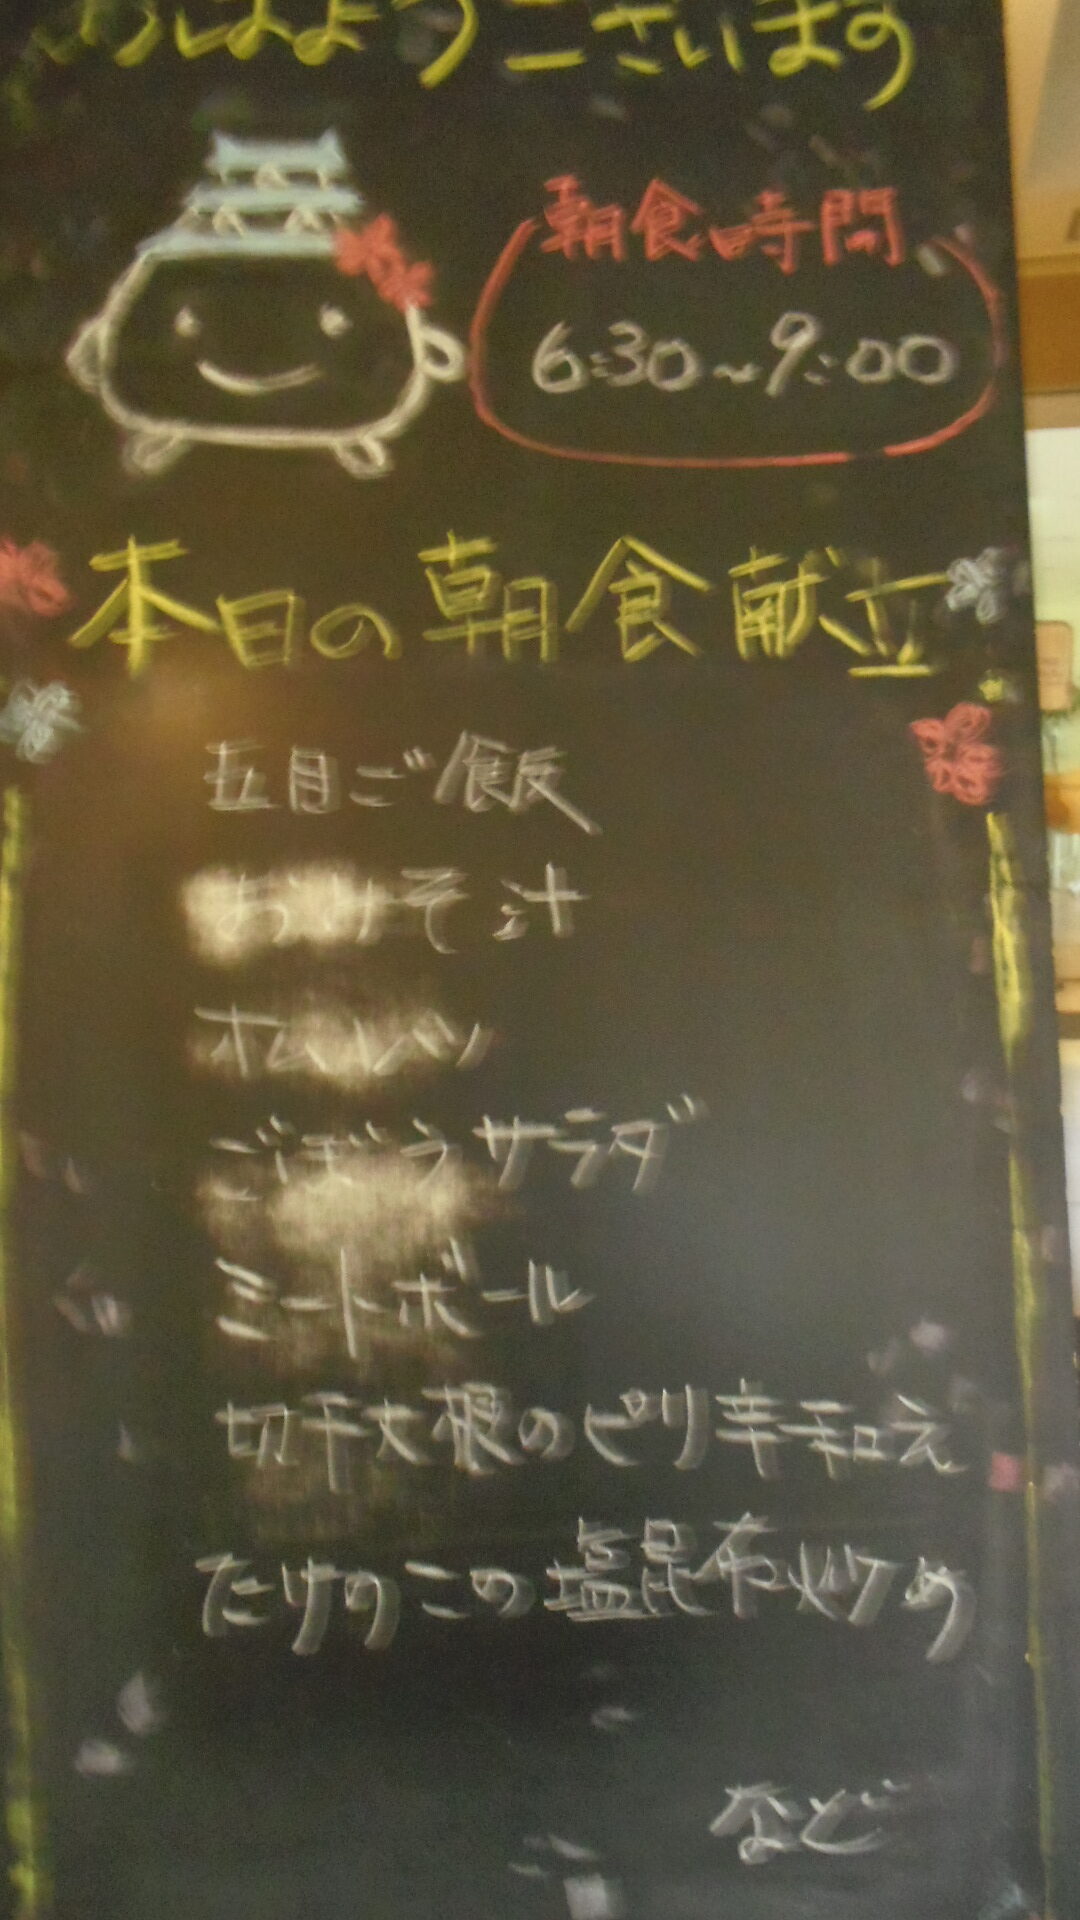 おはようございます
朝食時間
6:30~9:00
本日の朝食献立
五目ご飯
おみそ汁
オムレツ
ごぼうサラダ
ミートボール
切干大根のピリ辛和え
たけのこの塩昆布炒め
など